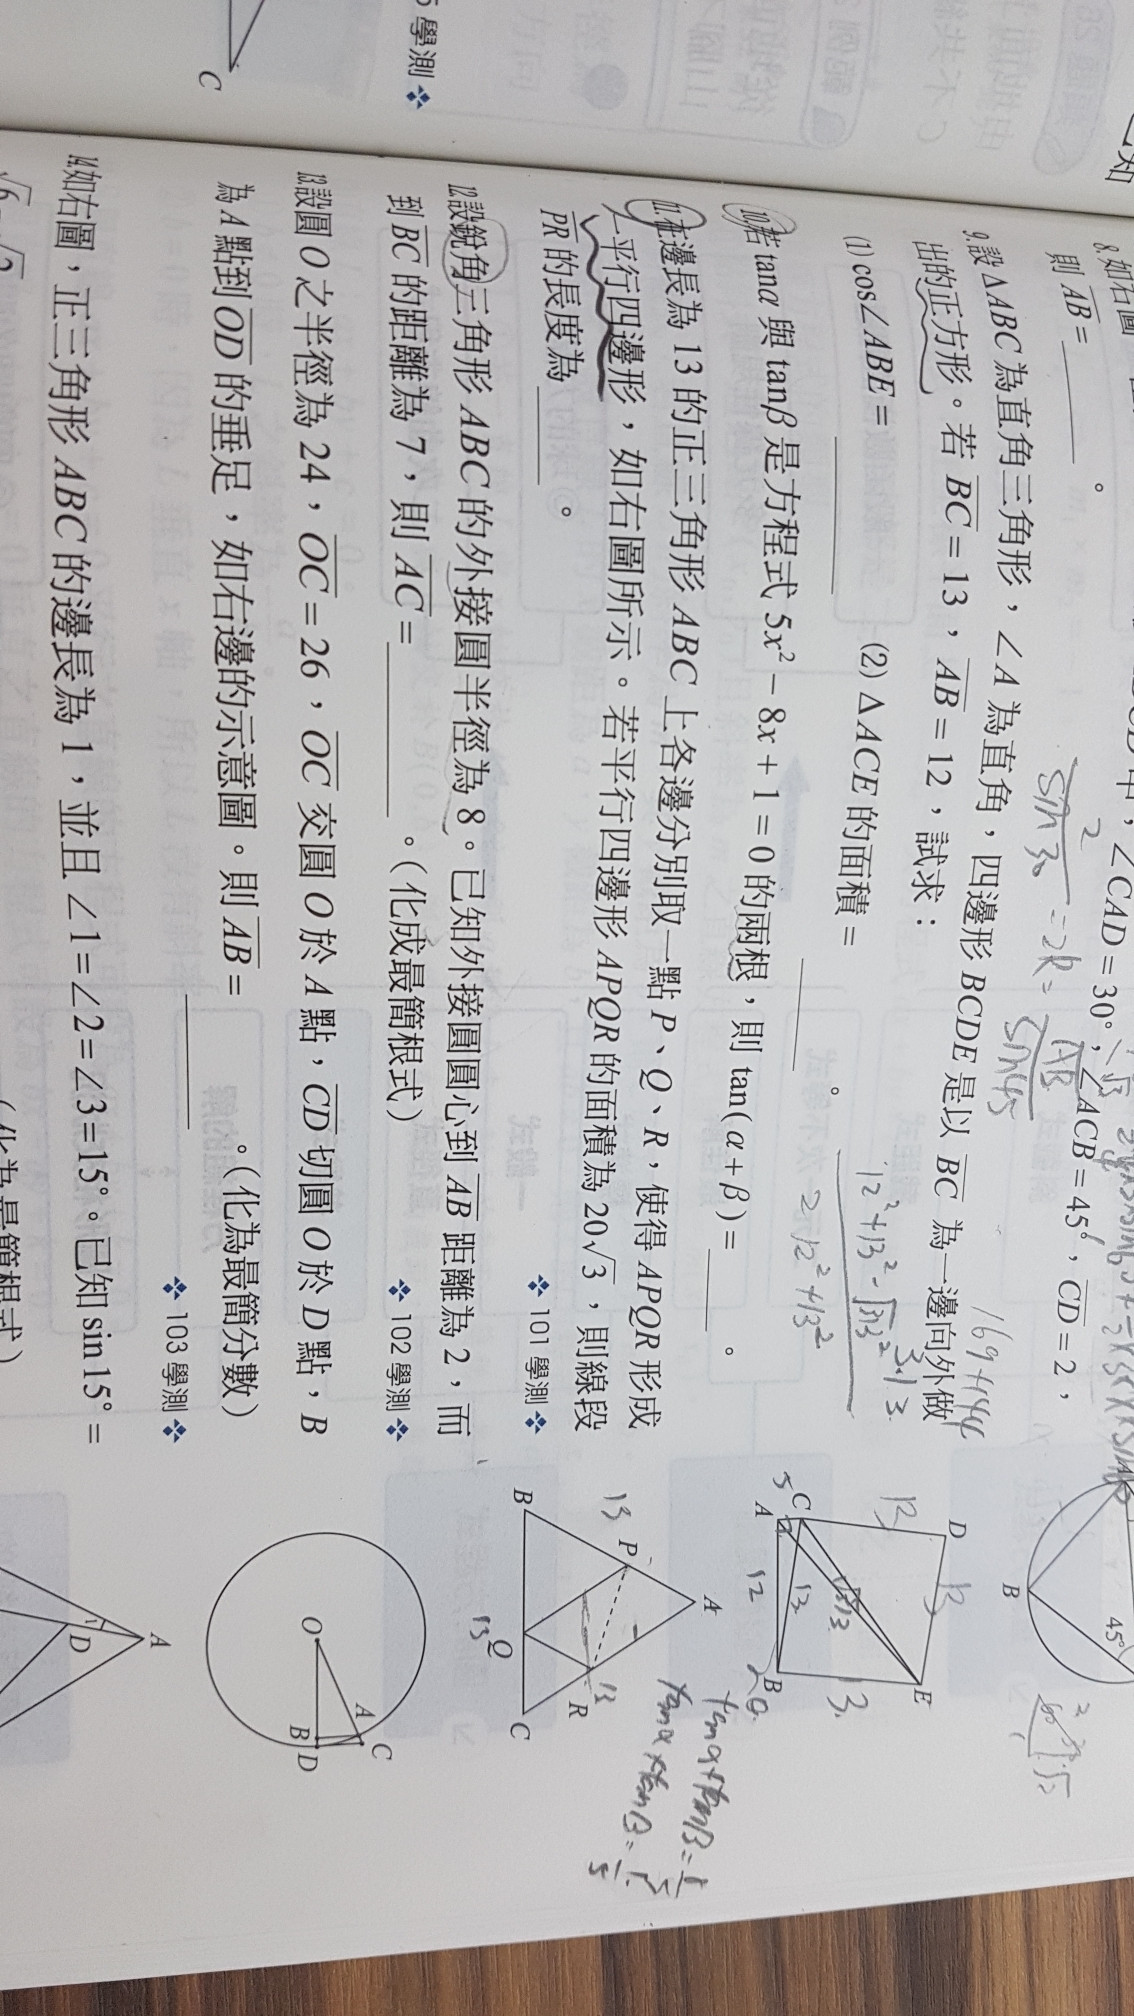 5 學測
C
已知
8. 如右圖
∠CAD = 30°, ∠ACB = 45°, CD = 2,
則 AB = ______。
9. 設 △ABC 為直角三角形, ∠A 為直角, 四邊形 BCDE 是以 BC 為一邊向外做
出的正方形。若 BC = 13, AB = 12, 試求:
(1) cos∠ABE = ______ (2) △ACE 的面積 = ______。
10. 若 tanα 與 tanβ 是方程式 5x² − 8x + 1 = 0 的兩根, 則 tan(α + β) = ______。
11. 在邊長為 13 的正三角形 ABC 上各邊分別取一點 P、Q、R, 使得 APQR 形成
一平行四邊形, 如右圖所示。若平行四邊形 APQR 的面積為 20√3, 則線段
PR 的長度為 ______。
101 學測
12. 設銳角三角形 ABC 的外接圓半徑為 8。已知外接圓圓心到 AB 距離為 2, 而
到 BC 的距離為 7, 則 AC = ______。(化成最簡根式)
102 學測
13. 設圓 O 之半徑為 24, OC = 26, OC 交圓 O 於 A 點, CD 切圓 O 於 D 點, B
為 A 點到 OD 的垂足, 如右邊的示意圖。則 AB = ______。(化為最簡分數)
103 學測
14. 如右圖, 正三角形 ABC 的邊長為 1, 並且 ∠1 = ∠2 = ∠3 = 15°。已知 sin 15° =
(化為最簡根式)
B
45°
D
E
C
A
B
5
12
13
13
13
A
P
B
Q
C
R
13
13
13
O
A
C
B
D
A
D
1
tanα+tanβ=
tanα×tanβ=
169+144
12²+13²-